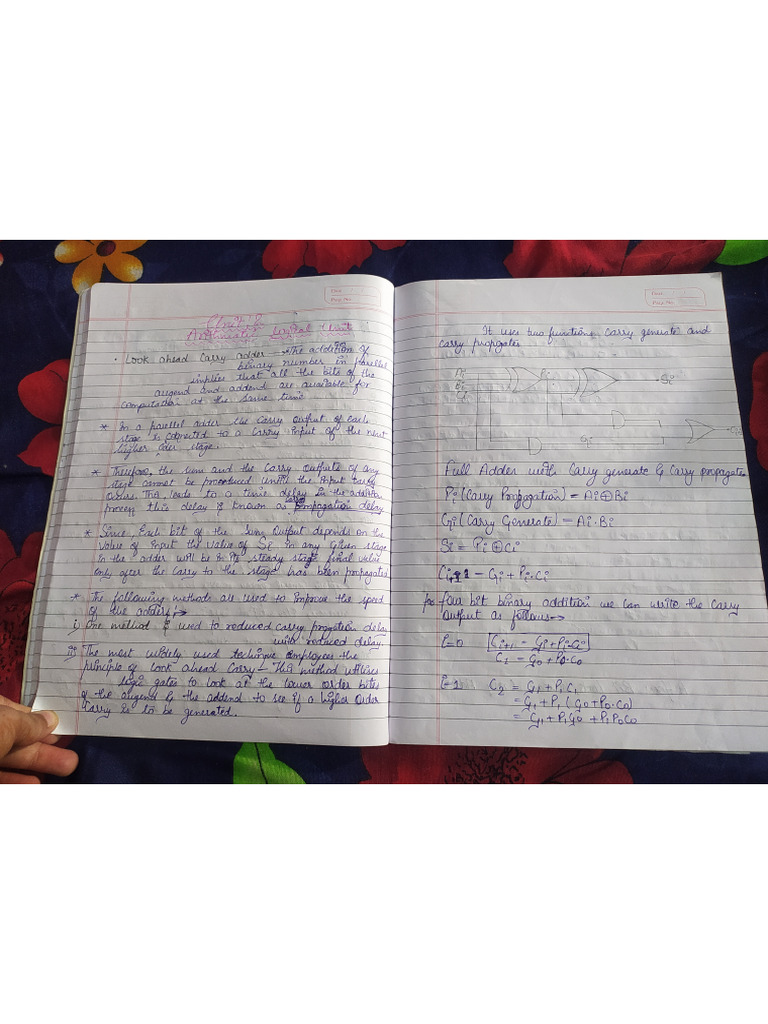 Date
Page No.
Unit-2
Arithmetic Logical Unit
• Look ahead Carry adder → The addition of
binary number in parallel
implies that all the bits of the
augend and addend are available for
computation at the same time
* In a parallel adder the carry output of each
stage is connected to a carry input of the next
higher order stage.
* Therefore, the sum and the carry outputs of any
stage cannot be produced until the input carry
occurs. This leads to a time delay in the addition
process this delay is known as carry propagation delay
* Since, Each bit of the Sum Output depends on the
Value of input the Value of Si in any Given stage
in the adder will be in its steady state final value
only after the carry to the stage has been propagated
* The following methods are used to improve the speed
of the adders:→
i) One method is used to reduced carry propgation delay
with reduced delay.
ii) The most widely used technique employees the
principle of look ahead carry – This method utilises
logic gates to look at the lower order bites
of the augend & the addend to see if a higher Order
Carry is to be generated.
Date
Page No.
It uses two functions carry generate and
carry propgates
Ai
Bi
Ci
Pi
Si
Gi
Full Adder with Carry generate & Carry propagates
Pi (Carry Propogation) = Ai⊕Bi
Gi (Carry Generate) = Ai·Bi
Si = Pi ⊕ Ci
Ci+1 – Gi + Pi·Ci
for four bit binary addition we can write the Carry
Output as follows→
i=0 Ci+1 – Gi+Pi·Ci
C1 = G0 + P0·C0
i=1 C2 = G1 + P1C1
= G1 + P1 (G0+P0·C0)
= G1 + P1G0 + P1P0C0